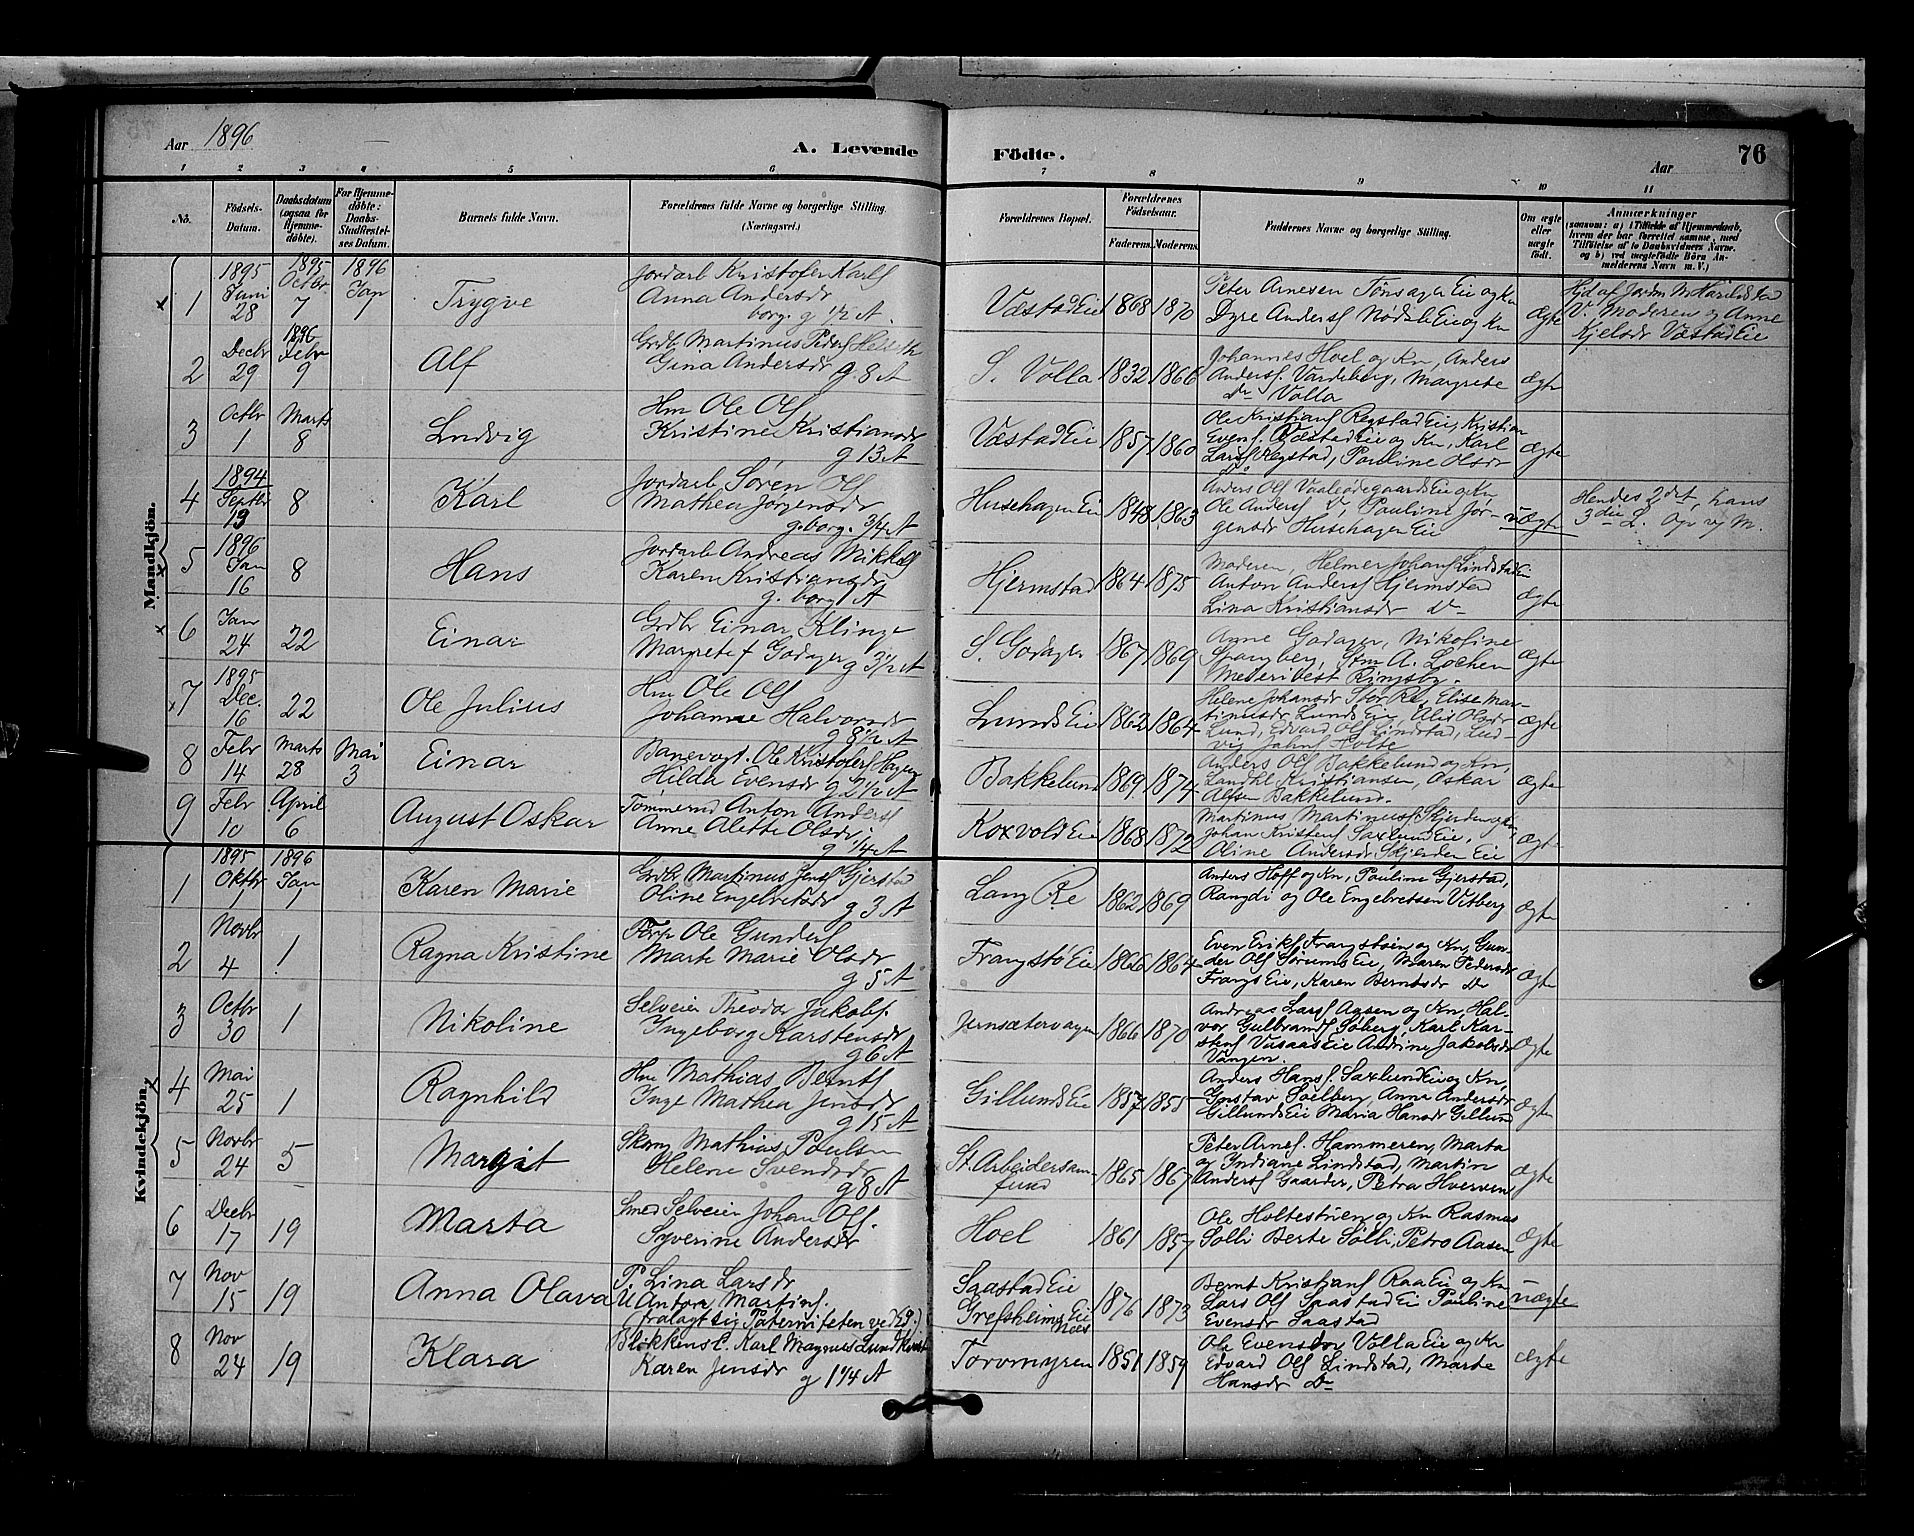 Aar 1896 A. Levende Födte. Aar 76
1 2 3 4 5 6 7 8 9 10 11
No. Födsels-Datum. Daabsdatum (ogsaa for Hjemmedöbte). For Hjemmedöbte: Daabs-Stadfæstelses Datum. Barnets fulde Navn. Forældrenes fulde Navne og borgerlige Stilling. (Næringsvei.) Forældrenes Bopæl. Forældrenes Födselsaar. Faderens. Moderens. Faddernes Navne og borgerlige Stilling. Om ægte eller uægte födt. Anmærkninger (saasom: a) i Tilfælde af Hjemmedaab, hvem der har forrettet samme, med Tilföielse af to Daabsvidners Navne, og b) ved uægtefödte Börn Anmelderens Navn m. V.)
Mandkjön.
1 1895 Juni 28 1895 Octbr 7 1896 Jan 1 Trygve Jordarb Kristofer Karls
Anna Andersdr
borg. g 1/2 A. Væstad Eie 1868 1870 Peter Arnesen Tönsager Eie og Kn
Dyre Anders Nödsle Eie og Kn ægte Hjd af Jordm M Harildstad
V. Moderen og Anne
Kjelsdr Væstad Eie
2 Decbr 29 1896 Febr 9 Alf Grdbr Martinus Peders
Gina Andersdr g 8 A S. Volla 1832 1866 Johannes Hoel og Kn, Anders
Anders. Vardeberg, Margrete
Do Volla ægte
3 Octbr 1 Marts 8 Ludvig Hm Ole Ols
Kristine Kristiansdr
g 13 A Væstad Eie 1857 1860 Ole Kristians Regstad Eie, Kristian
Evens. Væstad Eie og Kn, Karl
Lars Regstad, Pauline Olsdr
Do ægte
4 1894 Septbr 19 8 Karl Jordarb Sören Ols
Mathea Jörgensdr
g. borg. 3/4 A Husehagen Eie 1848 1863 Anders Ols Vaaleödegaards Eie og Kn
Ole Anders Do, Pauline Jör-
gensdr Husehagen Eie uægte Hendes 2det, hans
3die L.
5 1896 Jan 16 8 Hans Jordarb Andreas Mikkels
Karen Kristiansdr
g. borg 1 A Hjermstad 1864 1875 Moderen, Helmer Johans Lindstad Eie
Anton Anders Hjermstad
Lina Kristiansdr Do ægte
6 Jan 24 22 Einar Grdbr Einar Klinge
Margrete f Godager g 3 1/2 A S. Godager 1867 1869 Anne Godager, Nikoline
Spangberg, Stm A. Lochen
Meieribest Ringsby. ægte
7 1895 Dec. 16 22 Ole Julius Hm Ole Ols
Johanne Halvorsdr
g 8 1/2 A Lunds Eie 1862 1864 Helene Johansdr Stor Re, Elise Mar-
tinusdr Lunds Eie, Alis Olsdr
Lund, Edvard Ols Lindstad, Lud-
vig Johns Holte ægte
8 Febr 14 Marts 28 Mai 3 Einar Banevogt. Ole Kristofers Hagen
Hilda Evensdr g 2 1/2 A Bakkelund 1869 1874 Anders Ols Bakkelund og Kn,
Landhl Kristiansen, Oskar
Alfsen Bakkelund. ægte
9 Febr 10 April 6 August Oskar Tömmermd Anton Anders
Anne Alette Olsdr
g 1/4 A Koxvold Eie 1868 1872 Martinus Martinus Skjerden og Kn
Johan Kristens Saxlund Eie,
Oline Andersdr Skjerden Eie ægte
Kvindekjön.
1 1895 Oktbr 7 1896 Jan 1 Karen Marie Grdbr Martinus Jens Gjerstad
Oline Engebretsdr g 3 A Lang Re 1862 1869 Anders Hoff og Kn, Pauline Gjerstad,
Rangdi og Ole Engebretsen Vitberg ægte
2 Novbr 4 1 Ragna Kristine Forp Ole Gunders
Marte Marie Olsdr
g 5 A Frangstö Eie 1866 1864 Even Eriks Frangstuen og Kn, Gun-
der Ols Sörums Eie, Maren Pedersdr
Frangs Eie, Karen Berntsdr Do ægte
3 Octbr 30 1 Nikoline Selveier Theodor Jakobs.
Ingeborg Karstensdr
g 6 A Jernsætervagen 1866 1870 Andreas Lars Aasen og Kn, Hal-
vor Gulbrands Soberg, Karl Kar-
stens Vasaas Eie Andrine Jakobsdr
Vangen. ægte
4 Mai 25 1 Ragnhild Hm Mathias Bernts
Inge Mathea Jensdr
g 15 A Gillunds Eie 1857 1855 Anders Hans. Saxlund Eie og Kn,
Gustav Soelberg, Anna Andersdr
Gillunds Eie Maria Hansdr Gillund ægte
5 Novbr 24 5 Margit Skom Mathias Poulsen
Helene Svendsdr
g 8 A St. Arbeidersam-
fund 1865 1867 Peter Arnes. Hammeren, Marta
og Indiane Lindstad, Martin
Anders Gaarder, Petra Hverven ægte
6 Decbr 17 19 Marta Smed Selveier Johan Ols.
Syverine Andersdr Hoel 1861 1857 Ole Holtestuen og Kn Rasmus
Solli Berte Solli, Petro Aasen ægte
7 Nov 15 19 Anna Olava P. Lina Larsdr
U. Anton Martins.
(fralagt sig Paterniteten ved Ed.) Saastad Eie
Grefsheims Eie
Næs 1876 1873 Bernt Kristians Raa Eie og Kn
Lars Ols Saastad Eie Pauline
Evensdr Saastad uægte
8 Nov 24 19 Klara Blikkensl. Karl Magnus Lundkvist
Karen Jensdr g 1 1/4 A Torvmyren 1851 1859 Ole Evensdor Volla Eie og Kn
Edvard Ols Lindstad, Marte
Hansdr Do ægte